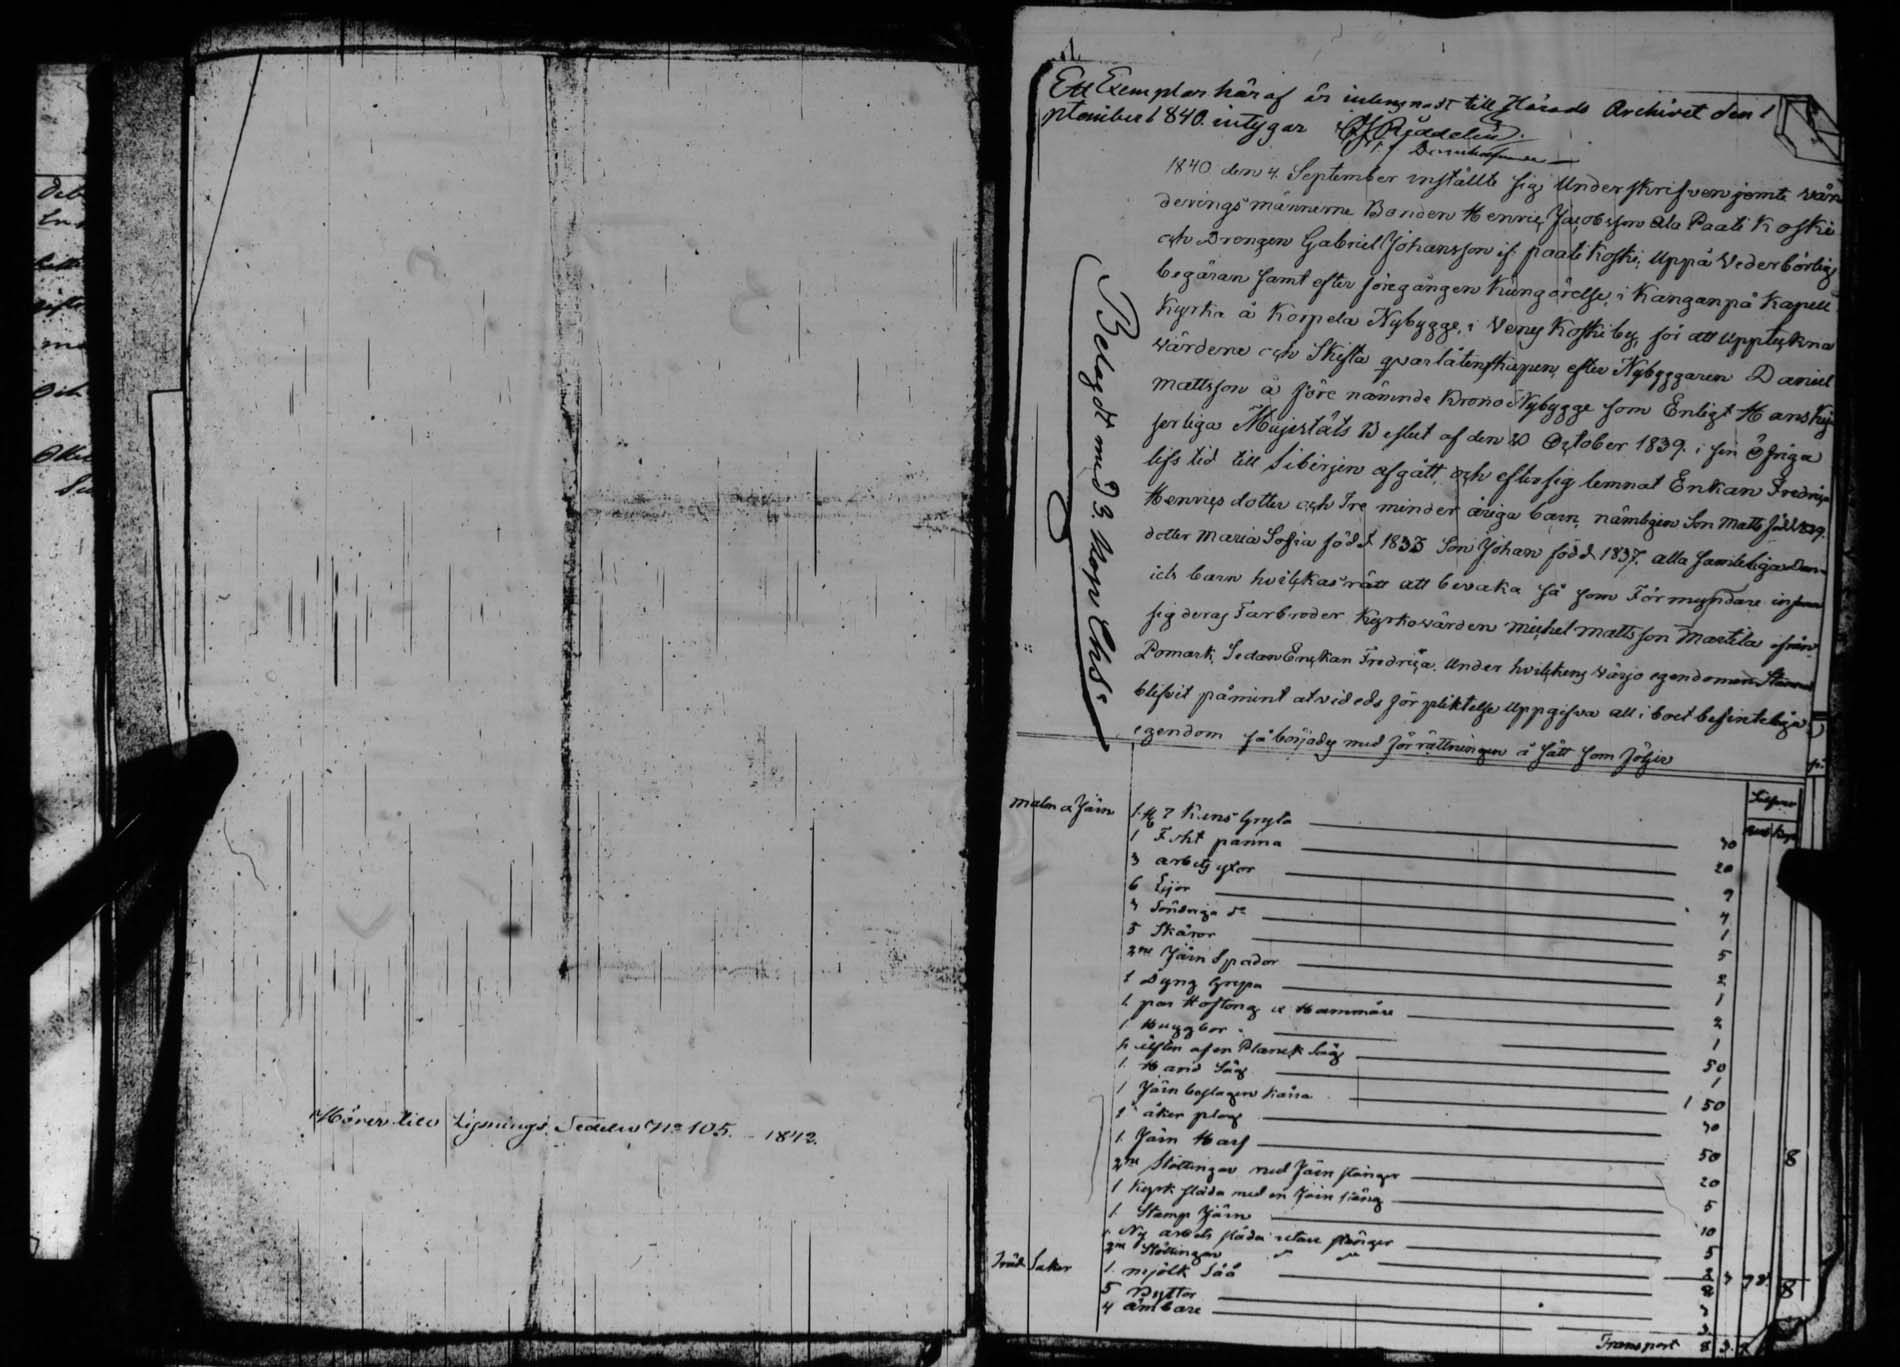 Hörer till Lignings Sedelen No 105. 1842.
Ett Exemplar häraf är inlemnadt till Härads Archivet den 1
ptember 1840. intygar
1840 den 4. September instälte sig Underskrifven jemte vär
deringsmännerne Bonden Henric Jacobsson Ala Paatikoski
och Drengen Gabriel Johansson if. paatikoski, Uppå Vederbörlig
begäran samt efter föregången Kungörelse, i Kanganpä Kapell
Kyrka å Korpela Nybygge, i Veneskoski by, för att Upptekna
värdera och Skifta qvarlåtenskapen, efter Nybyggaren Daniel
Mattsson å före nämnde Krono Nybygge som Enligt Hans Kej
serliga Majestäts Beslut af den 30 October 1839. i sin Öfriga
lifs tid till Siberjen afgått, och eftersig lemnat Enkan Fredrica
Henricsdotter och Tre minder åriga barn, nämligen Son Matts född 1829.
dotter Maria Sofia född 1833 Son Johan född 1837. alla samteliga Dan
iels barn hvilkas rätt att bevaka så som Förmyndare infann
sig deras Farbroder Kyrkovärden Michel Mattsson Marttila ifrån
Pomark, Sedan Enkan Fredrica. Under hvilkens värjo egendomen
blifvit påmint at vid eds förpliktelse Uppgifva all i boet befinteliga
egendom så börjades med förrättningen å sätt som följer
Belagdt med 3. Kop Chs
Silfver
Rub Kop
Malm & Järn 1. 7 Kans Gryta 70
1 panna 20
3 arbets yxor 9
6 Lijor 4
Söndriga do 1
5 Skäror 5
2ne Järn Spador 2
1 Dyng Grepa 1
1 par Hoftong & Hammare 2
1 Huggbor 1
hälften af en Planck Såg 50
1. Hand Såg 1
1 Järn beslagen Kärra 1 50
1 åker plog 70
1. Järn Harf 50
2ne Stöttingar med Järn stänger 20
1 Kyrk släda med en Järn stäng 5
1. Stamp Järn 10
1 Ny arbets släda utan stänger 5
2ne Stöttingar
Träd Saker 1. mjölk Såå
5 Byttor
4 ämbare 3
Transport